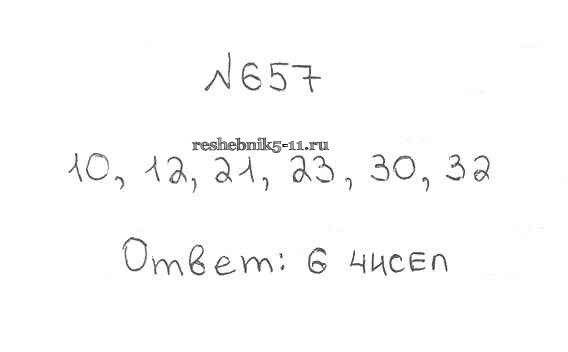 №657
reshebnik5-11.ru
10, 12, 21, 23, 30, 32
Ответ: 6 чисел